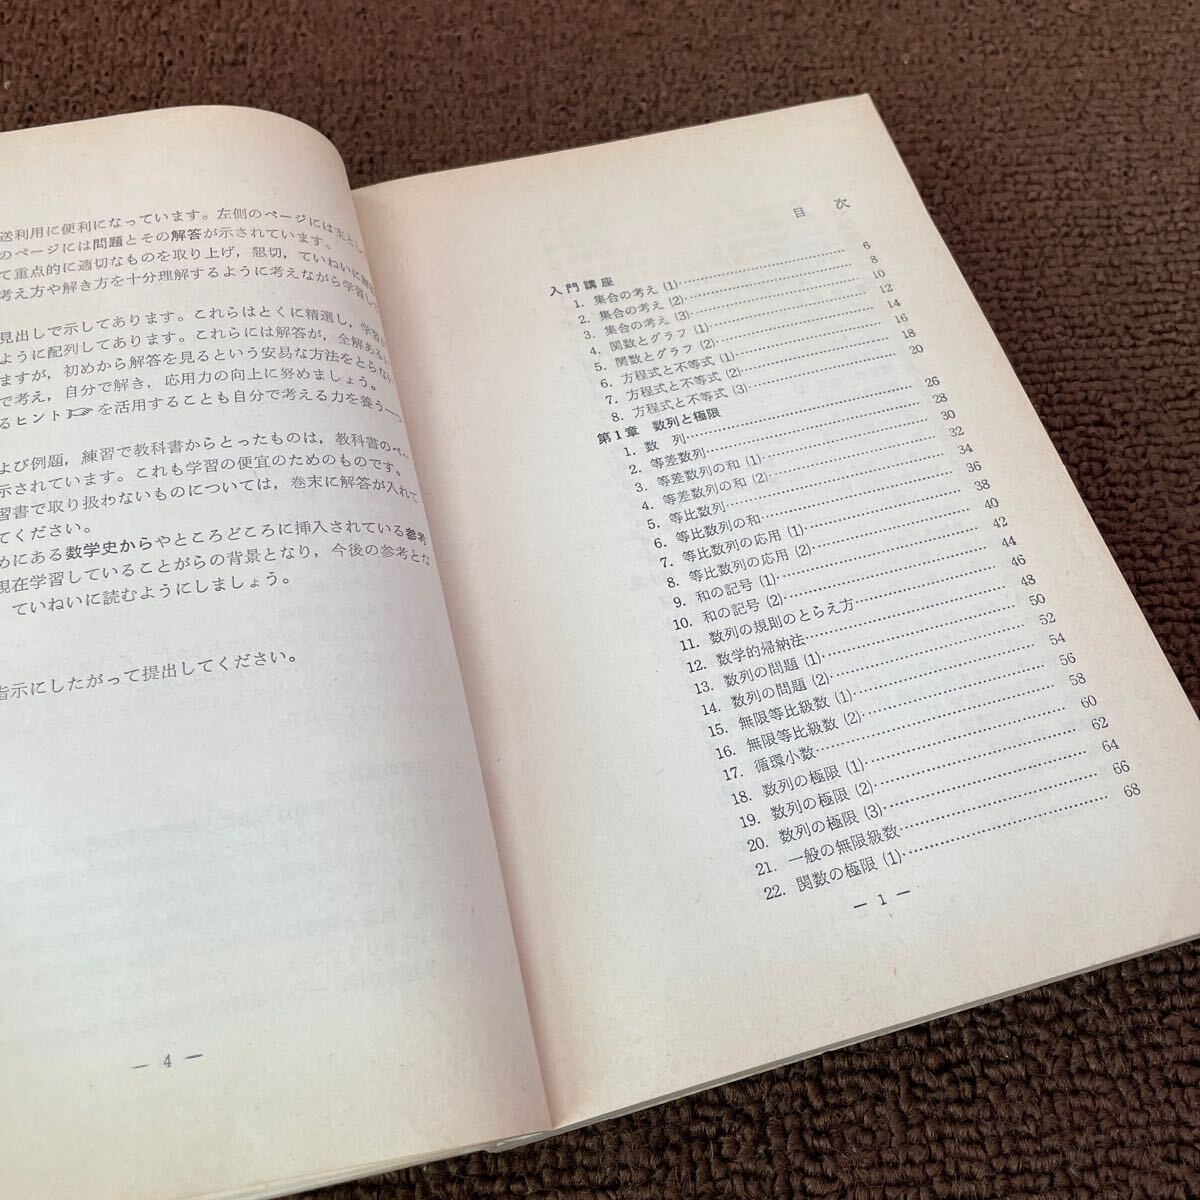 送利用に便利になっています。左側のページには主とし
のページには問題とその解答が示されています。
て重点的に適切なものを取り上げ，懇切，ていねいに
考え方や解き方を十分理解するように考えながら学習し
見出しで示してあります。これらはとくに精選し，学習
ように配列してあります。これらには解答が，全解ある
ますが，初めから解答を見るという安易な方法をとらない
で考え，自分で解き，応用力の向上に努めましょう。
るヒント☞を活用することも自分で考える力を養う一つ
よび例題，練習で教科書からとったものは，教科書のペー
示されています。これも学習の便宜のためのものです。
習書で取り扱わないものについては，巻末に解答が入れて
てください。
めにある数学史からやところどころに挿入されている参考
現在学習していることがらの背景となり，今後の参考とな
ていねいに読むようにしましょう。
指示にしたがって提出してください。
— 4 —
目　次
入門講座
1. 集合の考え (1)…… 6
2. 集合の考え (2)…… 8
3. 集合の考え (3)…… 10
4. 関数とグラフ (1)…… 12
5. 関数とグラフ (2)…… 14
6. 方程式と不等式 (1)…… 16
7. 方程式と不等式 (2)…… 18
8. 方程式と不等式 (3)…… 20
第1章　数列と極限
1. 数　列…… 26
2. 等差数列…… 28
3. 等差数列の和 (1)…… 30
4. 等差数列の和 (2)…… 32
5. 等比数列…… 34
6. 等比数列の和…… 36
7. 等比数列の応用 (1)…… 38
8. 等比数列の応用 (2)…… 40
9. 和の記号 (1)…… 42
10. 和の記号 (2)…… 44
11. 数列の規則のとらえ方…… 46
12. 数学的帰納法…… 48
13. 数列の問題 (1)…… 50
14. 数列の問題 (2)…… 52
15. 無限等比級数 (1)…… 54
16. 無限等比級数 (2)…… 56
17. 循環小数…… 58
18. 数列の極限 (1)…… 60
19. 数列の極限 (2)…… 62
20. 数列の極限 (3)…… 64
21. 一般の無限級数…… 66
22. 関数の極限 (1)…… 68
— 1 —